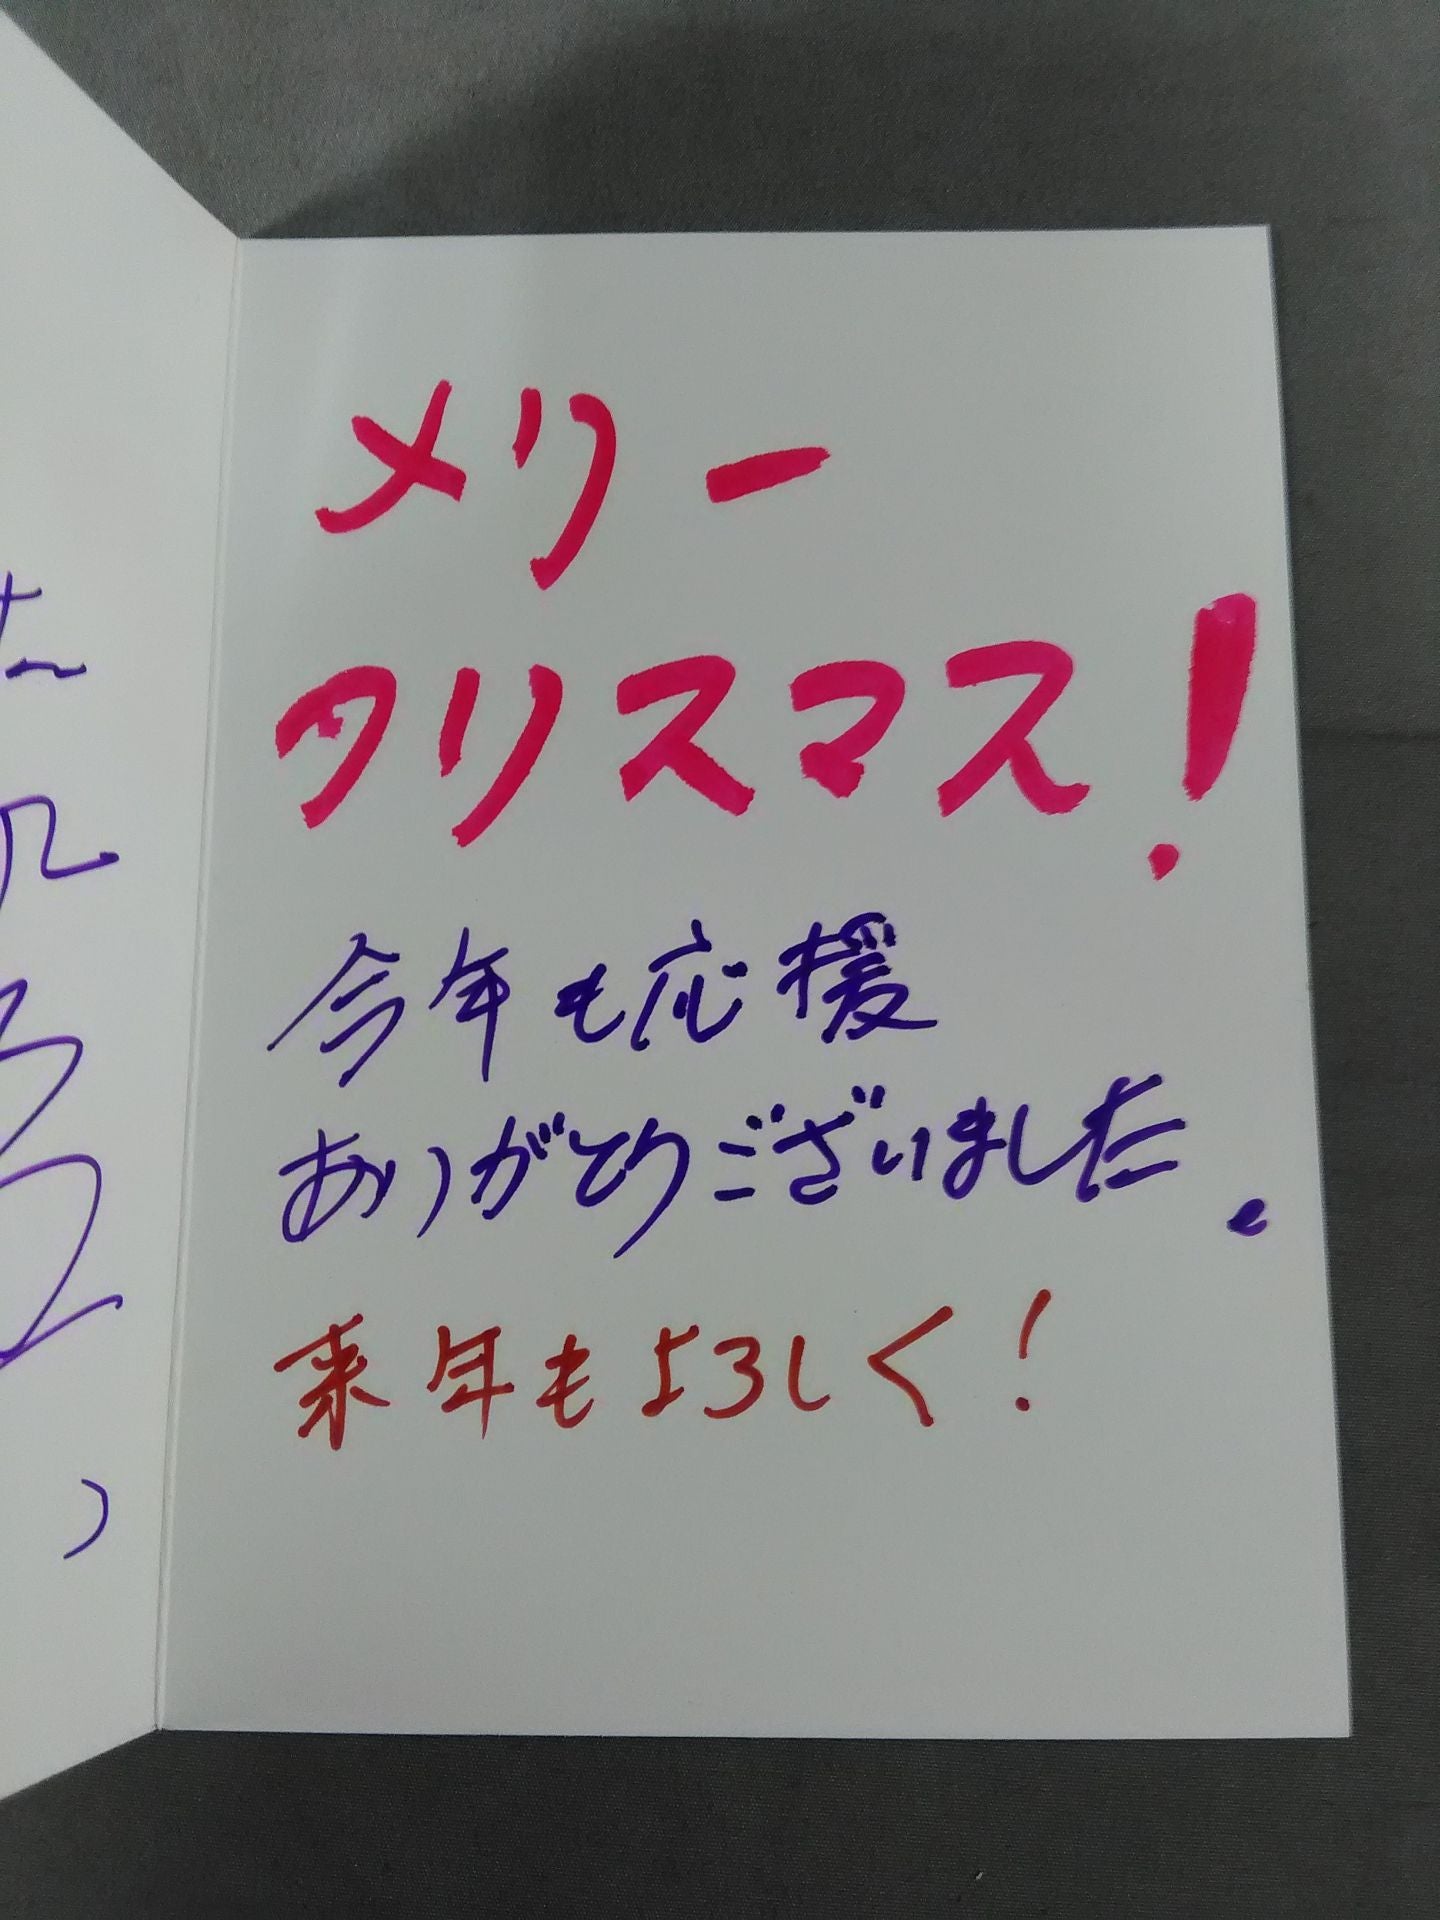 メリー
クリスマス!
今年も応援
ありがとうございました。
来年もよろしく!